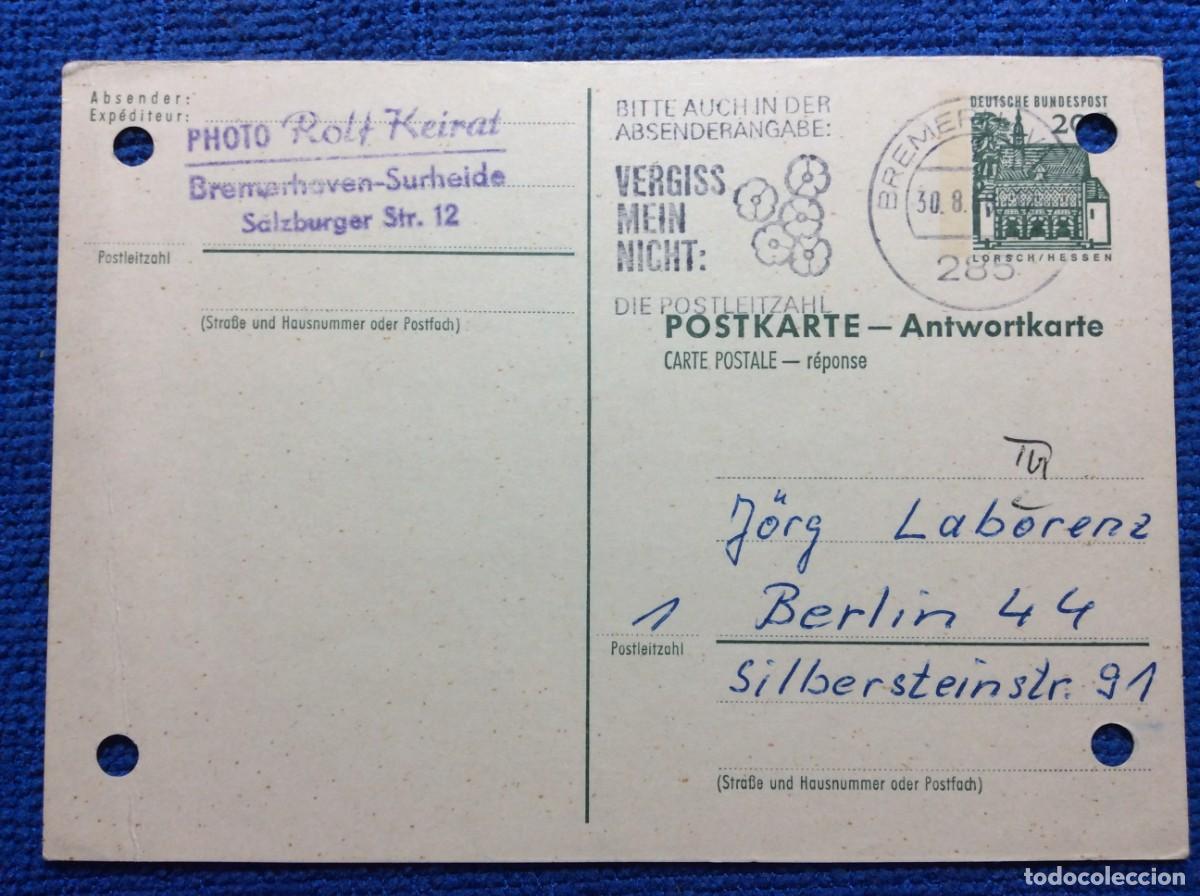 Absender:
Expéditeur:
PHOTO Rolf Keirat
Bremerhaven-Surheide
Salzburger Str. 12
Postleitzahl
(Straße und Hausnummer oder Postfach)
BITTE AUCH IN DER
ABSENDERANGABE:
VERGISS
MEIN
NICHT:
DIE POSTLEITZAHL
30.8.
285
DEUTSCHE BUNDESPOST
20
LORSCH/HESSEN
POSTKARTE — Antwortkarte
CARTE POSTALE — réponse
Jörg Laborenz
1 Berlin 44
Postleitzahl
Silbersteinstr. 91
(Straße und Hausnummer oder Postfach)
todocoleccion